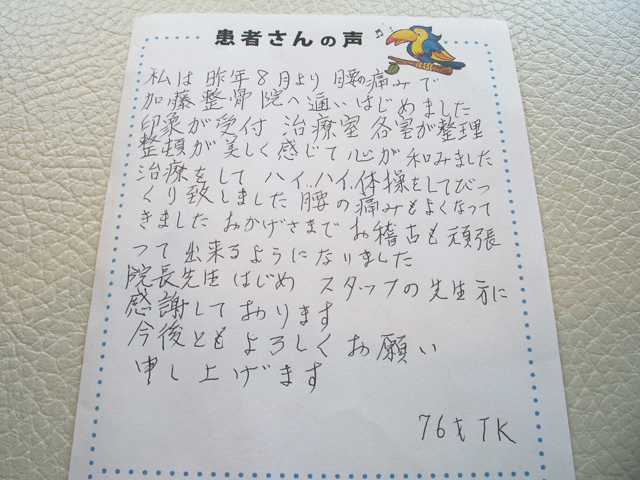 患者さんの声
私は昨年8月より腰の痛みで
加藤整骨院へ通いはじめました
印象が受付 治療室 各室が整理
整頓が美しく感じて心が和みました
治療をして ハイ、ハイ、体操をしてびっ
くり致しました 腰の痛みもよくなって
きました おかげさまで お稽古も頑張
って出来るようになりました
院長先生はじめ スタッフの先生方に
感謝しております
今後ともよろしくお願い
申し上げます
76才 TK